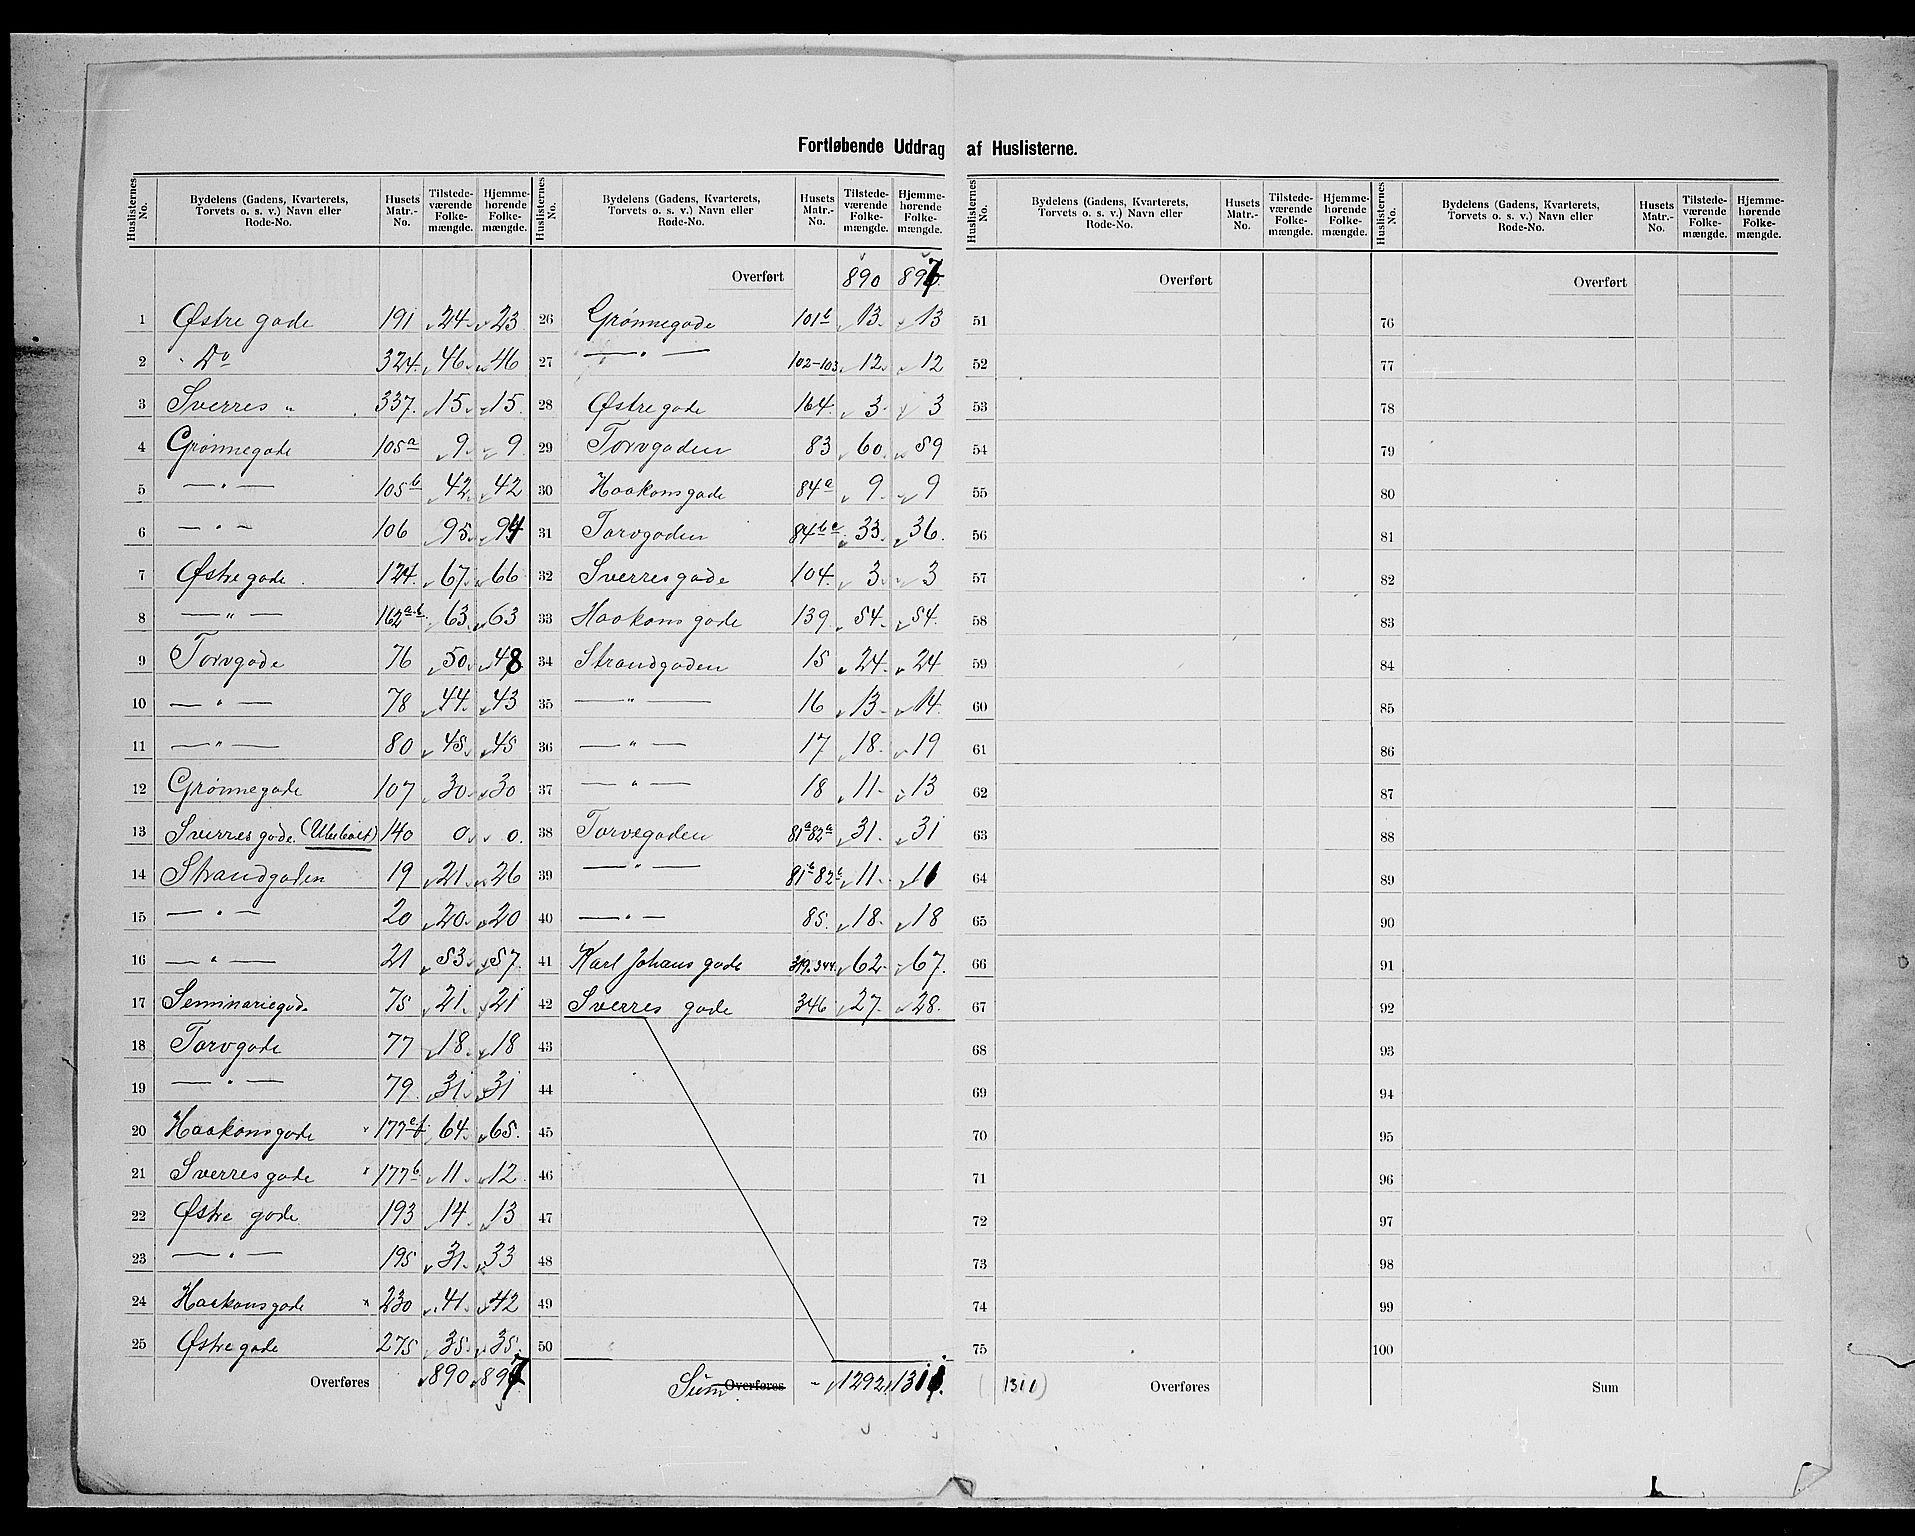 Fortløbende Uddrag af Huslisterne.
Huslisternes No. | Bydelens (Gadens, Kvarterets, Torvets o. s. v.) Navn eller Rode-No. | Husets Matr.-No. | Tilstedeværende Folkemængde. | Hjemmehørende Folkemængde.
1 Østre gade 191 24 23
2 Do 324 46 46
3 Sverres „ 337 15 15
4 Grønnegade 105a 9 9
5 — „ — 105b 42 42
6 — „ — 106 95 94
7 Østregade 124 67 66
8 — „ — 162a-b 63 63
9 Torvgade 76 50 48
10 — „ — 78 44 43
11 — „ — 80 45 45
12 Grønnegade 107 30 30
13 Sverresgade (Ubeboet) 140 0 0
14 Strandgaden 19 21 26
15 — „ — 20 20 20
16 — „ — 21 53 57
17 Seminariegade 75 21 21
18 Torvgade 77 18 18
19 — „ — 79 31 31
20 Haakonsgade 177 64 65
21 Sverresgade 177b 11 12
22 Østre gade 193 14 13
23 — „ — 195 31 33
24 Haakonsgade 230 41 42
25 Østregade 275 35 35
Overføres 890 897
Huslisternes No. | Bydelens (Gadens, Kvarterets, Torvets o. s. v.) Navn eller Rode-No. | Husets Matr.-No. | Tilstedeværende Folkemængde. | Hjemmehørende Folkemængde.
Overført 890 897
26 Grønnegade 101b 13 13
27 — „ — 102-103 12 12
28 Østregade 164 3 3
29 Torvgaden 83 60 59
30 Haakonsgade 84a 9 9
31 Torvgaden 84b c 33 36
32 Sverresgade 104 3 3
33 Haakonsgade 139 54 54
34 Strandgaden 15 24 24
35 — „ — 16 13 14
36 — „ — 17 18 19
37 — „ — 18 11 13
38 Torvegaden 81a 82a 31 31
39 — „ — 81b 82b 11 11
40 — „ — 85 18 18
41 Karl Johans gade 319.344 62 67
42 Sverres gade 346 27 28
43
44
45
46
47
48
49
50
Sum Overføres 1292 1311
Huslisternes No. | Bydelens (Gadens, Kvarterets, Torvets o. s. v.) Navn eller Rode-No. | Husets Matr.-No. | Tilstedeværende Folkemængde. | Hjemmehørende Folkemængde.
Overført
51
52
53
54
55
56
57
58
59
60
61
62
63
64
65
66
67
68
69
70
71
72
73
74
75
(1311) Overføres
Huslisternes No. | Bydelens (Gadens, Kvarterets, Torvets o. s. v.) Navn eller Rode-No. | Husets Matr.-No. | Tilstedeværende Folkemængde. | Hjemmehørende Folkemængde.
Overført
76
77
78
79
80
81
82
83
84
85
86
87
88
89
90
91
92
93
94
95
96
97
98
99
100
Sum